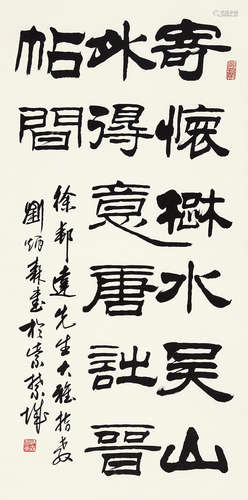 寄懷楚水吳山
外得意唐詩晉
帖間
徐邦達先生大雅指教
劉炳森書於紫禁城